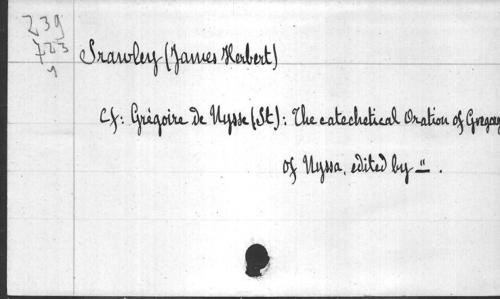 239
723
1
Srawley (James Herbert)
Cf: Grégoire de Nysse (St): The catechetical Oration of Gregory
of Nyssa, edited by ".